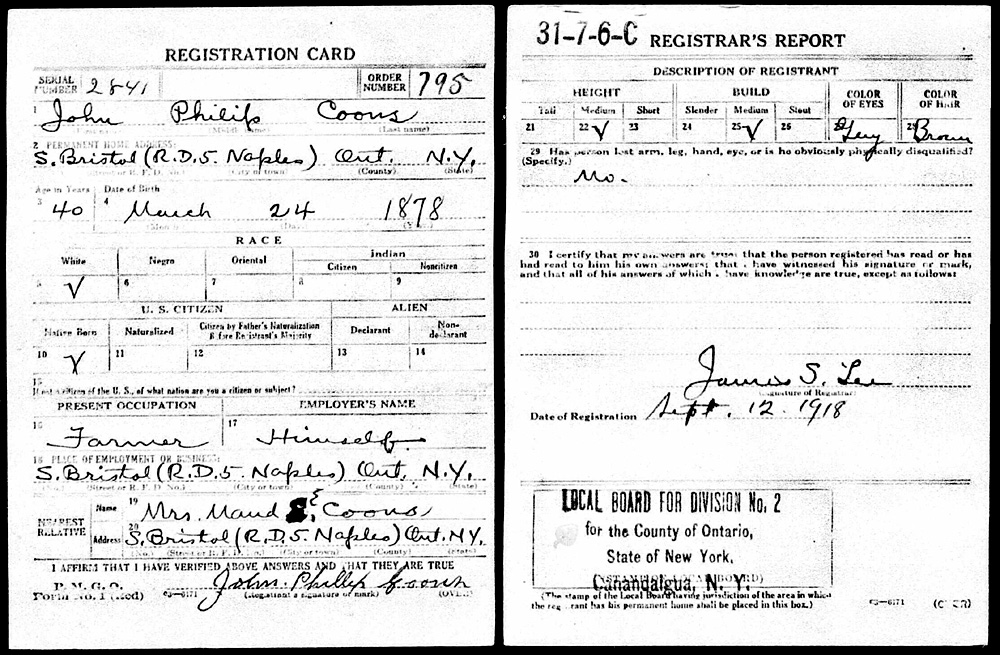 REGISTRATION CARD
SERIAL NUMBER 2841 ORDER NUMBER 795
1 John Philip Coons
(Middle name) (Last name)
2 PERMANENT HOME ADDRESS:
S. Bristol (R.D.5. Naples) Ont. N.Y.
(Street or R. F. D. No.) (City or town) (County) (State)
Age in Years Date of Birth
3 40 4 March 24 1878
RACE
White Negro Oriental Indian
Citizen Noncitizen
5 √ 6 7 8 9
U. S. CITIZEN ALIEN
Native Born Naturalized Citizen by Father's Naturalization Before Registrant's Majority Declarant Non-declarant
10 √ 11 12 13 14
15
If not a citizen of the U. S., of what nation are you a citizen or subject?
PRESENT OCCUPATION EMPLOYER'S NAME
16 Farmer 17 Himself
18 PLACE OF EMPLOYMENT OR BUSINESS:
S. Bristol (R.D.5. Naples) Ont. N.Y.
(Street or R. F. D. No.) (City or town) (County) (State)
NEAREST RELATIVE
Name 19 Mrs. Maud E. Coons
Address 20 S. Bristol (R.D.5. Naples) Ont. N.Y.
(No.) (Street or R. F. D. No.) (City or town) (County) (State)
I AFFIRM THAT I HAVE VERIFIED ABOVE ANSWERS AND THAT THEY ARE TRUE
P. M. G. O.
Form No. 1 (Red) 03—6171 John Phillip Coons
(Registrant's signature or mark) (OVER)
31-7-6-C REGISTRAR'S REPORT
DESCRIPTION OF REGISTRANT
HEIGHT BUILD COLOR OF EYES COLOR OF HAIR
Tall Medium Short Slender Medium Stout
21 22 √ 23 24 25 √ 26 27 Grey 28 Brown
29 Has person lost arm, leg, hand, eye, or is he obviously physically disqualified?
(Specify.)
No.
30 I certify that my answers are true; that the person registered has read or has
had read to him his own answers; that I have witnessed his signature or mark,
and that all of his answers of which I have knowledge are true, except as follows:
James S. Lee
(Signature of Registrar)
Date of Registration Sept. 12. 1918
LOCAL BOARD FOR DIVISION No. 2
for the County of Ontario,
State of New York,
Canandaigua, N. Y.
(STAMP OF LOCAL BOARD)
(The stamp of the Local Board having jurisdiction of the area in which
the registrant has his permanent home shall be placed in this box.)
03—6171 (OVER)